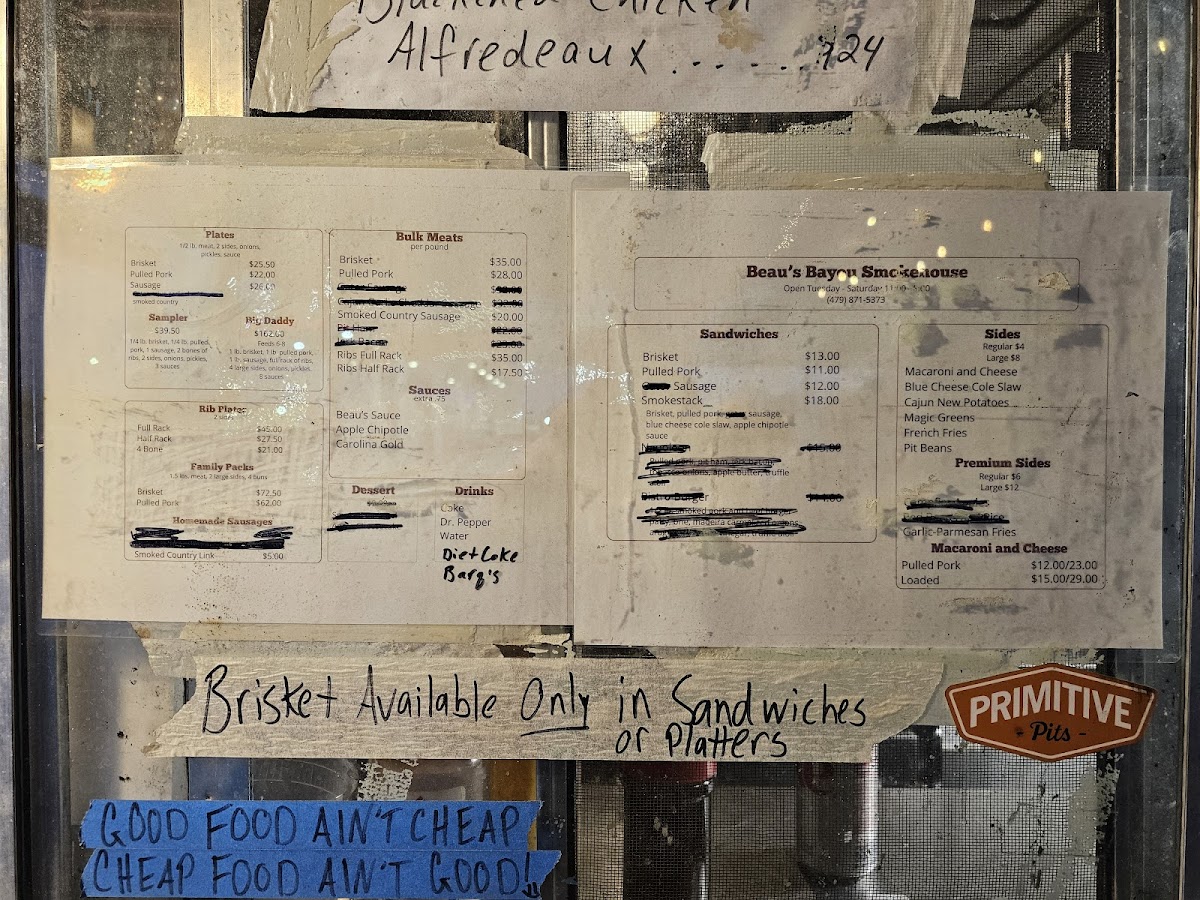 Blackened Chicken
Alfredeaux......$24
Plates
1/2 lb. meat, 2 sides, onions,
pickles, sauce
Brisket $25.50
Pulled Pork $22.00
Sausage $26.00
smoked country
Sampler
$39.50
1/4 lb. brisket, 1/4 lb. pulled,
pork, 1 sausage, 2 bones of
ribs, 2 sides, onions, pickles,
3 sauces
Big Daddy
$162.00
Feeds 6-8
1 lb. brisket, 1 lb. pulled pork,
1 lb. sausage, full rack of ribs,
4 large sides, onions, pickles,
8 sauces
Rib Plates
2 sides
Full Rack $45.00
Half Rack $27.50
4 Bone $21.00
Family Packs
1.5 lbs. meat, 2 large sides, 4 buns
Brisket $72.50
Pulled Pork $62.00
Homemade Sausages
Smoked Country Link $5.00
Bulk Meats
per pound
Brisket $35.00
Pulled Pork $28.00
Smoked Country Sausage $20.00
Ribs Full Rack $35.00
Ribs Half Rack $17.50
Sauces
extra .75
Beau's Sauce
Apple Chipotle
Carolina Gold
Dessert
Drinks
Coke
Dr. Pepper
Water
Diet Coke
Barq's
Beau's Bayou Smokehouse
Open Tuesday - Saturday 11:00 -
(479) 871-5373
Sandwiches
Brisket $13.00
Pulled Pork $11.00
Sausage $12.00
Smokestack $18.00
Brisket, pulled pork, sausage,
blue cheese cole slaw, apple chipotle
sauce
Sides
Regular $4
Large $8
Macaroni and Cheese
Blue Cheese Cole Slaw
Cajun New Potatoes
Magic Greens
French Fries
Pit Beans
Premium Sides
Regular $6
Large $12
Garlic-Parmesan Fries
Macaroni and Cheese
Pulled Pork $12.00/23.00
Loaded $15.00/29.00
Brisket Available Only in Sandwiches
or Platters
PRIMITIVE
- Pits -
GOOD FOOD AIN'T CHEAP
CHEAP FOOD AIN'T GOOD!!